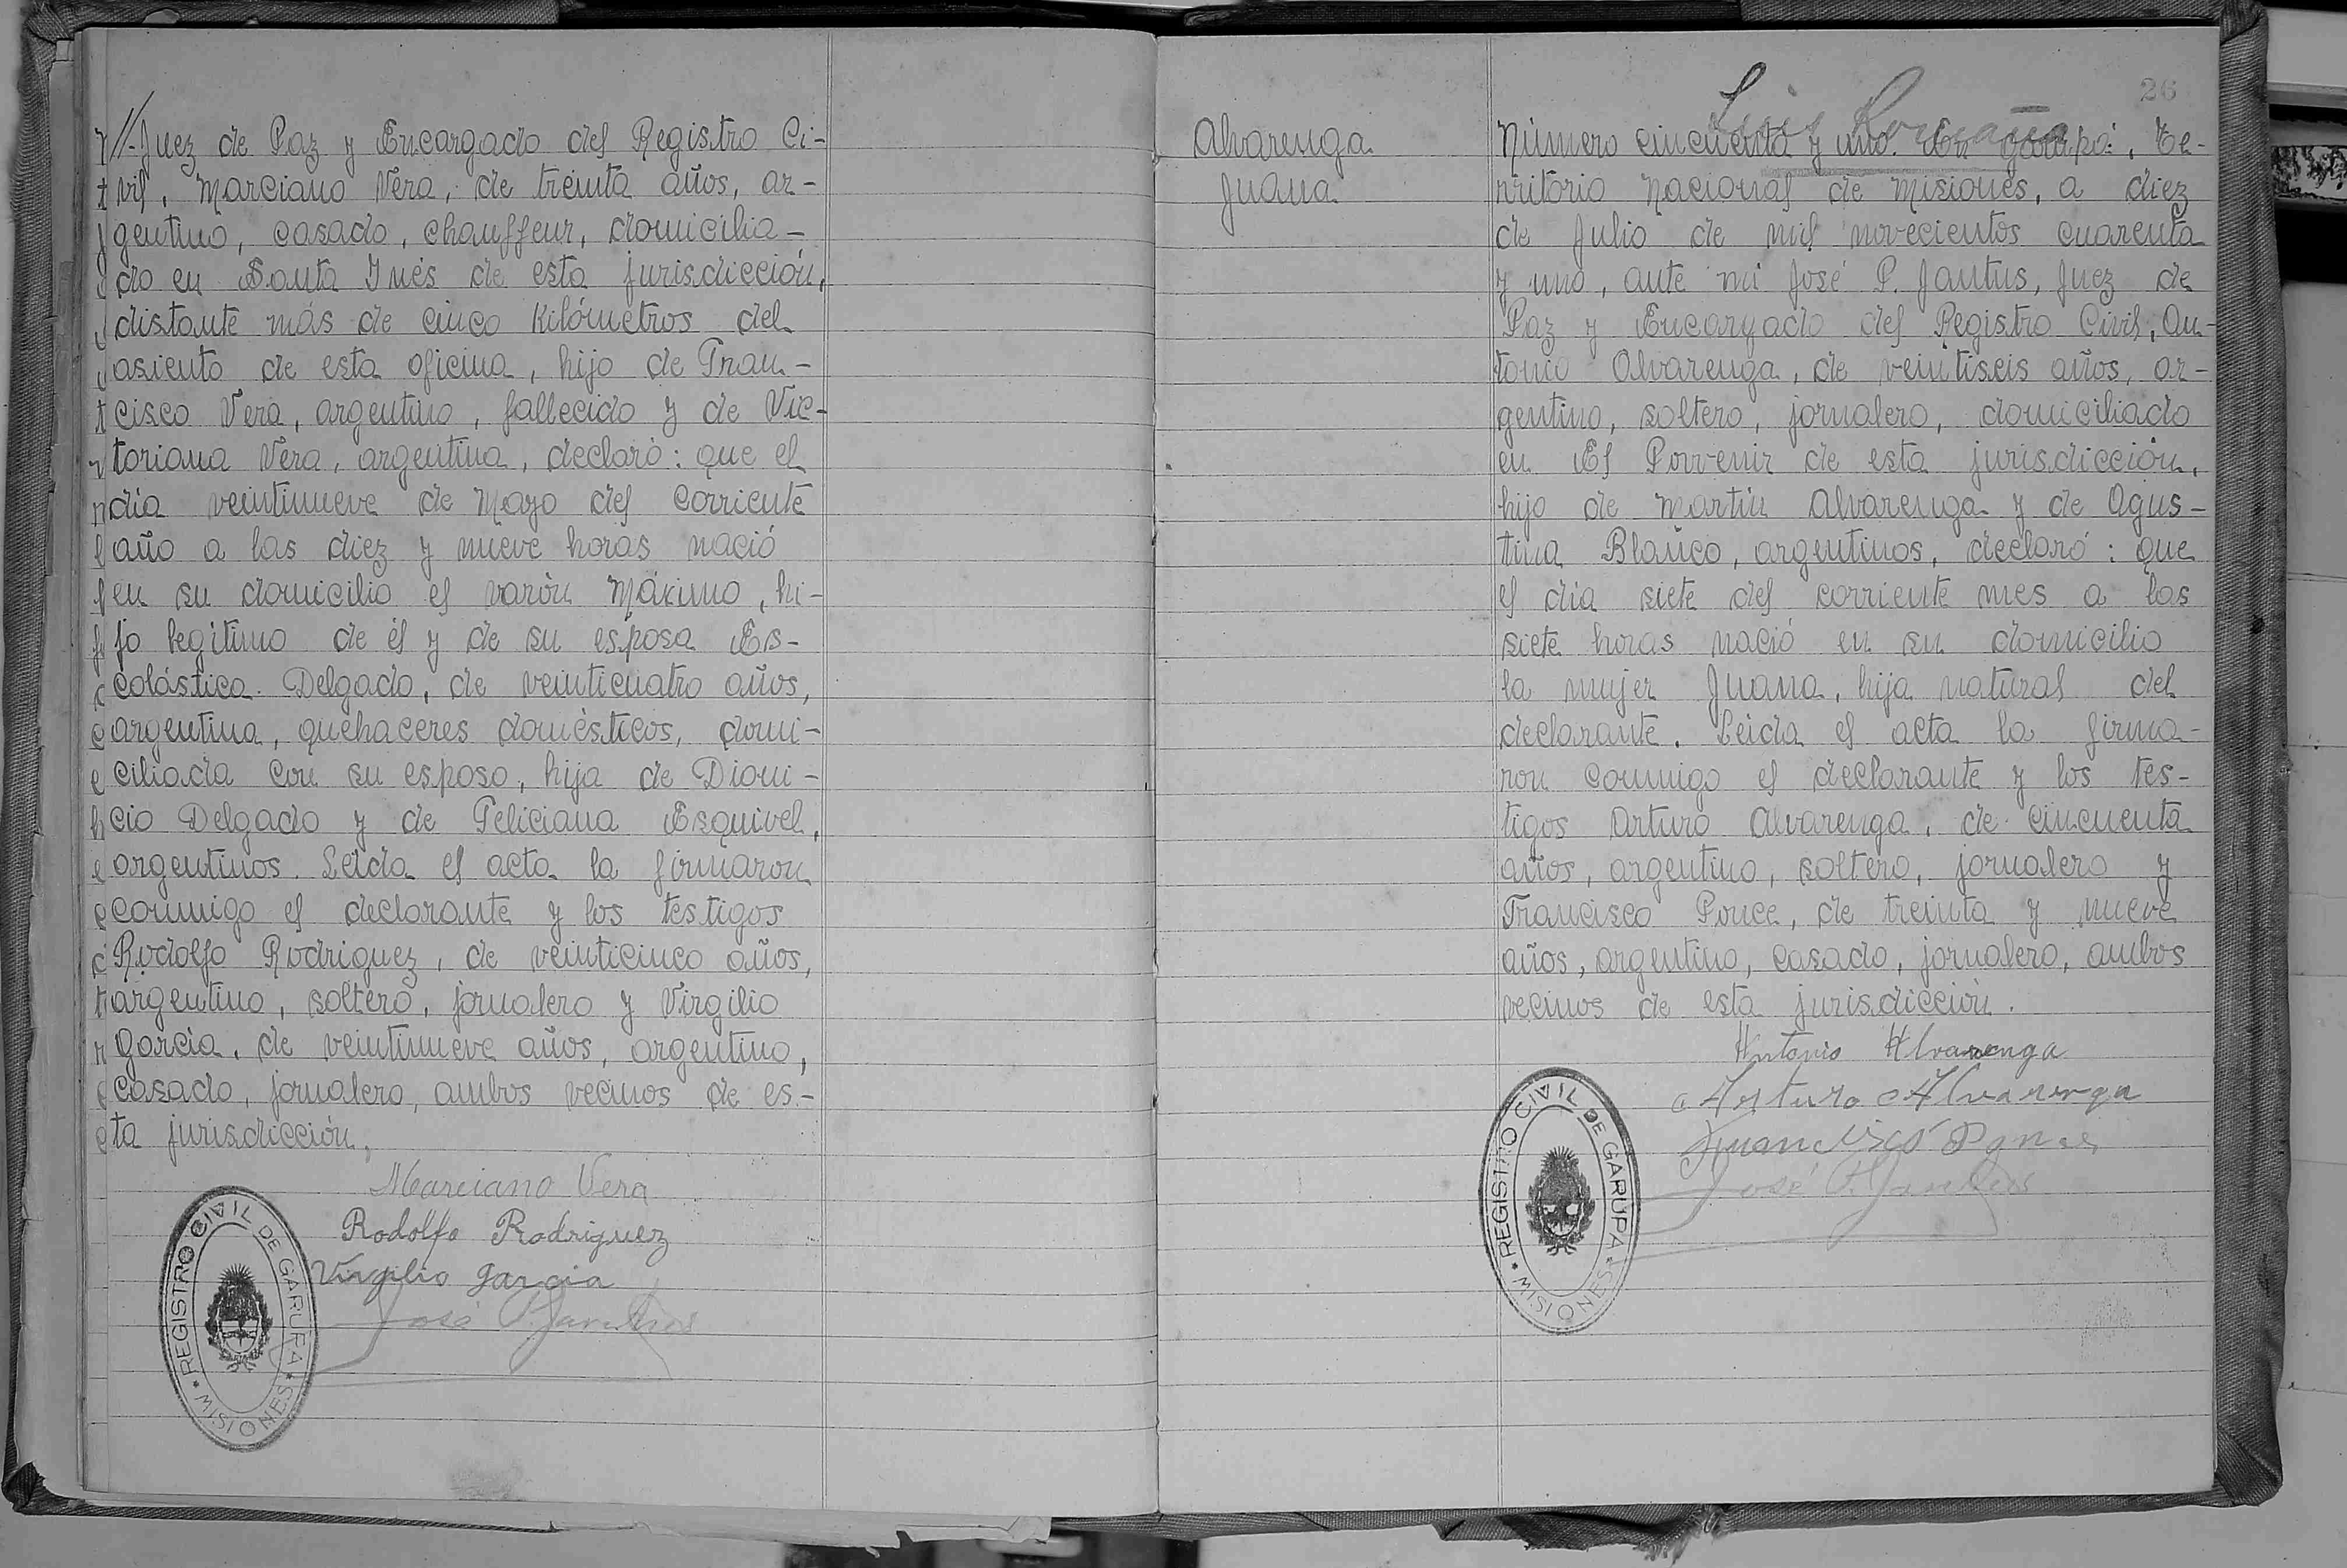 //-Juez de Paz y Encargado del Registro Ci-
vil, Marciano Vera, de treinta años, ar-
gentino, casado, chauffeur, domicilia-
do en Santa Inés de esta jurisdicción,
distante más de cinco Kilómetros del
asiento de esta oficina, hijo de Fran-
cisco Vera, argentino, fallecido y de Vic-
toriana Vera, argentina, declaró: que el
día veintinueve de Mayo del corriente
año a las diez y nueve horas nació
en su domicilio el varón Máximo, hi-
jo legítimo de él y de su esposa Es-
colástica Delgado, de veinticuatro años,
argentina, quehaceres domésticos, domi-
ciliada con su esposo, hija de Dioni-
cio Delgado y de Feliciana Esquivel,
argentinos. Leída el acta la firmaron
conmigo el declarante y los testigos
Rodolfo Rodriguez, de veinticinco años,
argentino, soltero, jornalero y Virgilio
García, de veintinueve años, argentino,
casado, jornalero, ambos vecinos de es-
ta jurisdicción.
Marciano Vera
Rodolfo Rodriguez
Virgilio Garcia
José P. Jantus
REGISTRO CIVIL DE GARUPA
MISIONES
26
Luis Romaña
Alvarenga
Juana
Número cincuenta y uno. En Garupá, Te-
rritorio Nacional de Misiones, a diez
de Julio de mil novecientos cuarenta
y uno, ante mi José P. Jantus, Juez de
Paz y Encargado del Registro Civil, An-
tonio Alvarenga, de veintiseis años, ar-
gentino, soltero, jornalero, domiciliado
en El Porvenir de esta jurisdicción,
hijo de Martín Alvarenga y de Agus-
tina Blanco, argentinos, declaró: que
el día siete del corriente mes a las
siete horas nació en su domicilio
la mujer Juana, hija natural del
declarante. Leída el acta la firma-
ron conmigo el declarante y los tes-
tigos Arturo Alvarenga, de cincuenta
años, argentino, soltero, jornalero y
Francisco Ponce, de treinta y nueve
años, argentino, casado, jornalero, ambos
vecinos de esta jurisdicción.
Antonio Alvarenga
Arturo Alvarenga
Francisco Ponce
José P. Jantus
REGISTRO CIVIL DE GARUPA
MISIONES